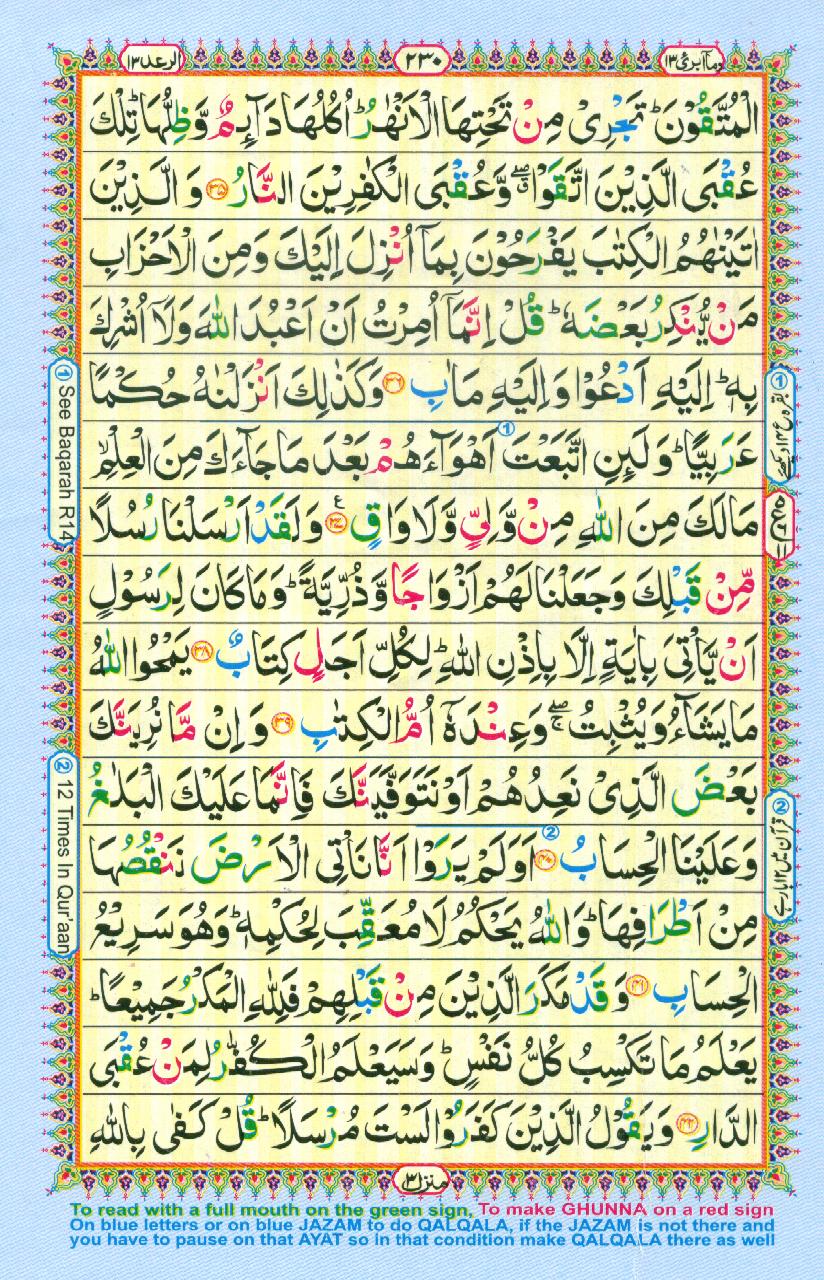 وما ابرئ ١٣
٢٣٠
الرعد ١٣
الْمُتَّقُوْنَ ؕ تَجْرِىْ مِنْ تَحْتِهَا الْاَنْهٰرُ ؕ اُكُلُهَا دَآئِمٌ وَّظِلُّهَا ؕ تِلْكَ
عُقْبَى الَّذِيْنَ اتَّقَوْا ۖۗ وَّعُقْبَى الْكٰفِرِيْنَ النَّارُ ۝٣٥ وَالَّذِيْنَ
اٰتَيْنٰهُمُ الْكِتٰبَ يَفْرَحُوْنَ بِمَاۤ اُنْزِلَ اِلَيْكَ وَمِنَ الْاَحْزَابِ
مَنْ يُّنْكِرُ بَعْضَهٗ ؕ قُلْ اِنَّمَاۤ اُمِرْتُ اَنْ اَعْبُدَ اللّٰهَ وَلَاۤ اُشْرِكَ
بِهٖ ؕ اِلَيْهِ اَدْعُوْا وَاِلَيْهِ مَاٰبِ ۝٣٦ وَكَذٰلِكَ اَنْزَلْنٰهُ حُكْمًا
عَرَبِيًّا ؕ وَلَئِنِ اتَّبَعْتَ ① اَهْوَآءَهُمْ بَعْدَ مَا جَآءَكَ مِنَ الْعِلْمِ ۙ
مَا لَكَ مِنَ اللّٰهِ مِنْ وَّلِىٍّ وَّلَا وَاقٍ ۝٣٧ ع وَلَقَدْ اَرْسَلْنَا رُسُلًا
مِّنْ قَبْلِكَ وَجَعَلْنَا لَهُمْ اَزْوَاجًا وَّذُرِّيَّةً ؕ وَمَا كَانَ لِرَسُوْلٍ
اَنْ يَّاْتِىَ بِاٰيَةٍ اِلَّا بِاِذْنِ اللّٰهِ ؕ لِكُلِّ اَجَلٍ كِتَابٌ ۝٣٨ يَمْحُوا اللّٰهُ
مَا يَشَآءُ وَيُثْبِتُ ۖۚ وَعِنْدَهٗۤ اُمُّ الْكِتٰبِ ۝٣٩ وَاِنْ مَّا نُرِيَنَّكَ
بَعْضَ الَّذِىْ نَعِدُهُمْ اَوْ نَتَوَفَّيَنَّكَ فَاِنَّمَا عَلَيْكَ الْبَلٰغُ
وَعَلَيْنَا الْحِسَابُ ۝٤٠ ② اَوَلَمْ يَرَوْا اَنَّا نَاْتِى الْاَرْضَ نَنْقُصُهَا
مِنْ اَطْرَافِهَا ؕ وَاللّٰهُ يَحْكُمُ لَا مُعَقِّبَ لِحُكْمِهٖ ؕ وَهُوَ سَرِيْعُ
الْحِسَابِ ۝٤١ وَقَدْ مَكَرَ الَّذِيْنَ مِنْ قَبْلِهِمْ فَلِلّٰهِ الْمَكْرُ جَمِيْعًا ؕ
يَعْلَمُ مَا تَكْسِبُ كُلُّ نَفْسٍ ؕ وَسَيَعْلَمُ الْكُفّٰرُ لِمَنْ عُقْبَى
الدَّارِ ۝٤٢ وَيَقُوْلُ الَّذِيْنَ كَفَرُوْا لَسْتَ مُرْسَلًا ؕ قُلْ كَفٰى بِاللّٰهِ
① See Baqarah R14
② 12 Times In Qur'aan
② قرآن میں ۱۲ بار ہے
منزل ٣
To read with a full mouth on the green sign, To make GHUNNA on a red sign
On blue letters or on blue JAZAM to do QALQALA, if the JAZAM is not there and
you have to pause on that AYAT so in that condition make QALQALA there as well